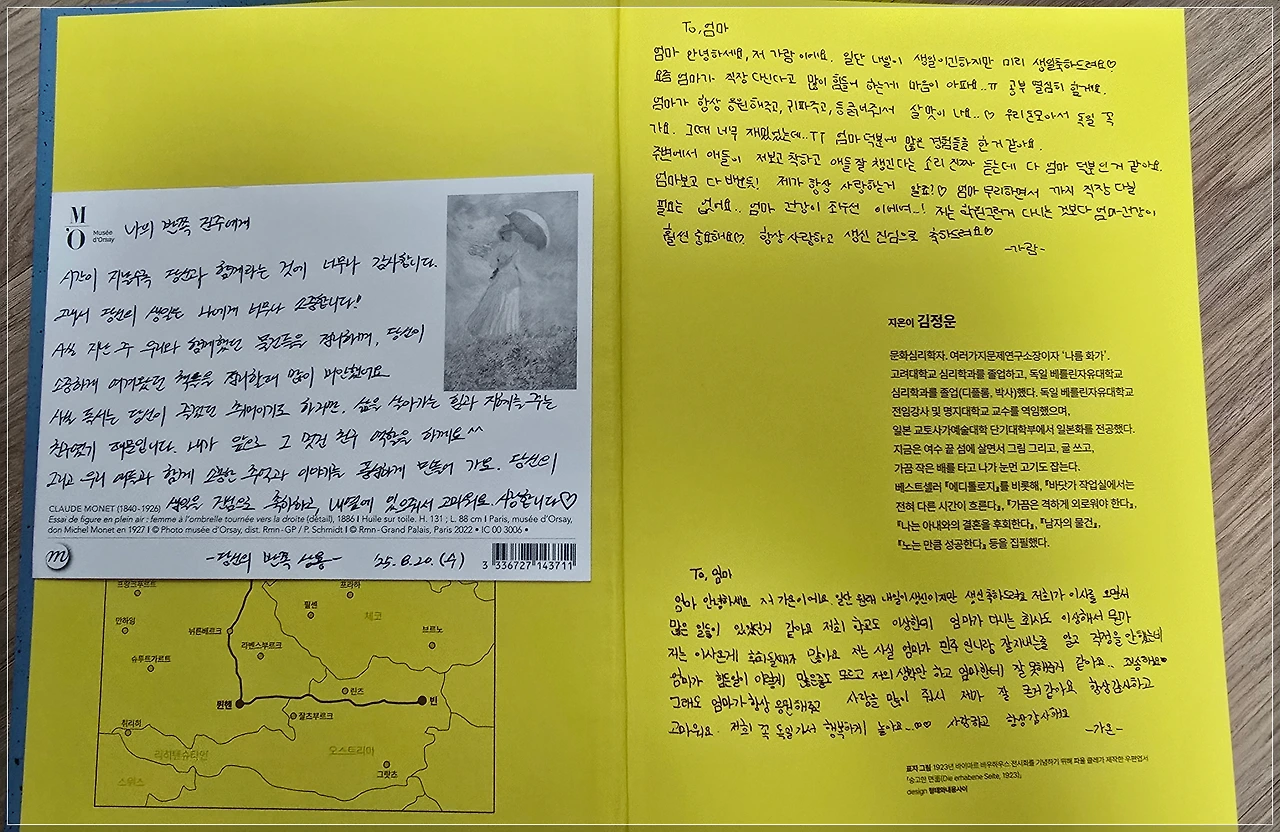 M
'O
Musée
d'Orsay
나의 반쪽 진주에게
시간이 지날수록 당신과 함께라는 것에 너무나 감사합니다.
그래서 당신의 생일은 나에게 너무나 소중합니다!
사실 지난 주 우리와 함께했던 물건들을 정리하며, 당신이
소중하게 여겨왔던 책들을 정리할때 많이 미안했어요
사실 독서는 당신이 즐겼던 취미이기도 하지만, 삶을 살아가는 힘과 지혜를 주는
친구였기 때문입니다. 내가 앞으로 그 멋진 친구 역할을 할게요^^
그리고 우리 애들과 함께 소중한 추억과 이야기를 풍성하게 만들어 가요. 당신의
생일을 진심으로 축하하고, 내 옆에 있어줘서 고마워요. 사랑합니다♡
CLAUDE MONET (1840-1926)
Essai de figure en plein air : femme à l'ombrelle tournée vers la droite (détail), 1886 I Huile sur toile. H. 131 ; L. 88 cm I Paris, musée d'Orsay,
don Michel Monet en 1927 I © Photo musée d'Orsay, dist. Rmn-GP / P. Schmidt I © Rmn-Grand Palais, Paris 2022 • IC 00 3006 •
m
-당신의 반쪽 상용-
'25. 8. 20. (수)
3 336727 143711
프랑크푸르트
프라하
만하임
필젠
체코
뉘른베르크
브르노
라벤스부르크
슈투트가르트
린츠
뮌헨
빈
잘츠부르크
취리히
리히텐슈타인
오스트리아
스위스
그랏츠
To, 엄마
엄마 안녕하세요, 저 가람이에요. 일단 내일이 생일이긴하지만 미리 생일축하드려요♡
요즘 엄마가 직장 다닌다고 많이 힘들어 하는게 마음이 아파요..ㅠ 공부 열심히 할게요.
엄마가 항상 응원해주고, 귀파주고, 등긁어줘서 살맛이 나요..♡ 우리 돈모아서 독일 꼭
가요. 그때 너무 재밌었는데..ㅠㅠ 엄마 덕분에 많은 경험들을 한거 같아요.
주변에서 애들이 저보고 착하고 애들 잘 챙긴다는 소리 진짜 듣는데 다 엄마 덕분인거 같아요.
엄마보고 다 배운듯! 제가 항상 사랑하는거 알죠?♡ 엄마 무리하면서 까지 직장 다닐
필요는 없어요.. 엄마 건강이 최우선 이에여..! 저는 학원그런거 다니는 것보다 엄마건강이
훨씬 중요해요♡. 항상 사랑하고 생신 진심으로 축하드려요♡
-가람-
지은이 김정운
문화심리학자. 여러가지문제연구소장이자 '나름 화가'.
고려대학교 심리학과를 졸업하고, 독일 베를린자유대학교
심리학과를 졸업(디플롬, 박사)했다. 독일 베를린자유대학교
전임강사 및 명지대학교 교수를 역임했으며,
일본 교토사가예술대학 단기대학부에서 일본화를 전공했다.
지금은 여수 끝 섬에 살면서 그림 그리고, 글 쓰고,
가끔 작은 배를 타고 나가 눈먼 고기도 잡는다.
베스트셀러 『에디톨로지』를 비롯해, 『바닷가 작업실에서는
전혀 다른 시간이 흐른다』, 『가끔은 격하게 외로워야 한다』,
『나는 아내와의 결혼을 후회한다』, 『남자의 물건』,
『노는 만큼 성공한다』 등을 집필했다.
To, 엄마
엄마 안녕하세요 저 가온이에요 일단 원래 내일이 생신이지만 생신 축하드려요 저희가 이사를 오면서
많은 일들이 있었던거 같아요 저희 학교도 이상한데 엄마가 다니는 회사도 이상해서 뭔가
저는 이사온게 후회될때가 많아요 저는 사실 엄마가 진주 언니랑 잘지내는줄 알고 걱정을 안했는데
엄마가 힘든일이 이렇게 많은줄도 모르고 저의 생활만 하고 엄마한테 잘 못해준거 같아요.. 죄송해요♡
그래도 엄마가 항상 응원해주고 사랑을 많이 줘서 제가 잘 큰거 같아요 항상감사하고
고마워요. 저희 꼭 독일가서 행복하게 놀아요..♡♡ 사랑하고 항상감사해요
-가온-
표지 그림 1923년 바이마르 바우하우스 전시회를 기념하기 위해 파울 클레가 제작한 우편엽서
「숭고한 면」(Die erhabene Seite, 1923)』
design 형태와내용사이